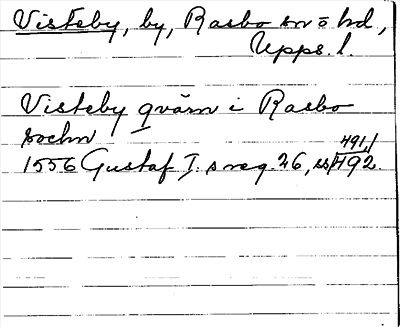 Visteby, by, Rasbo sn o hd,
Upps. l.
Visteby qvärn i Rasbo
sochn
1556 Gustaf I. s reg. 26, ss. 491, 492.